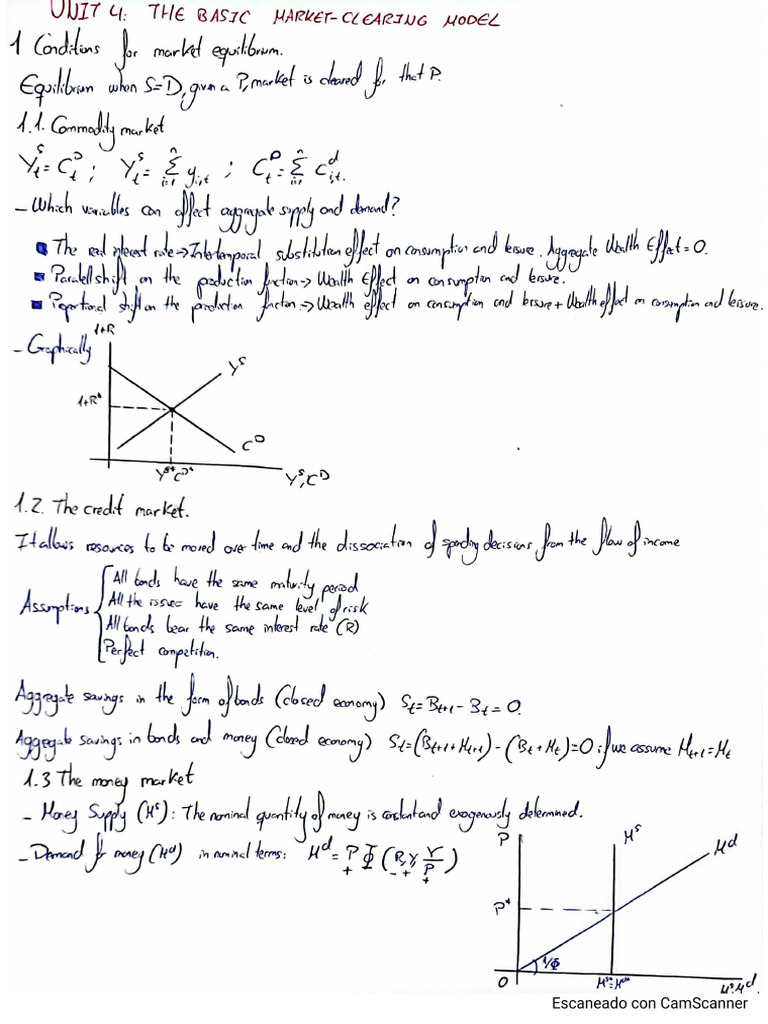 UNIT 4: THE BASIC MARKET-CLEARING MODEL
1 Conditions for market equilibrium.
Equilibrium when S=D, given a P, market is cleared for that P.
1.1. Commodity market
Y_t^S = C_t^D ; Y_t^S = Σ_{i=1}^n y_{i,t} ; C_t^D = Σ_{i=1}^n C_{i,t}^d.
- Which variables can affect aggregate supply and demand?
▪ The real interest rate → Intertemporal substitution effect on consumption and leisure. Aggregate Wealth Effect = 0.
▪ Parallel shift on the production function → Wealth Effect on consumption and leisure.
▪ Proportional shift on the production function → Wealth effect on consumption and leisure + Wealth effect on consumption and leisure.
- Graphically
1+R
Y^S
1+R*
C^D
Y^S* C^D*
Y^S, C^D
1.2. The credit market.
It allows resources to be moved over time and the dissociation of spending decisions from the flow of income
Assumptions
All bonds have the same maturity period
All the issues have the same level of risk
All bonds bear the same interest rate (R)
Perfect competition.
Aggregate savings in the form of bonds (closed economy) S_t = B_{t+1} - B_t = 0.
Aggregate savings in bonds and money (closed economy) S_t = (B_{t+1} + M_{t+1}) - (B_t + M_t) = 0 if we assume M_{t+1} = M_t
1.3 The money market
- Money Supply (M^s): The nominal quantity of money is constant and exogenously determined.
- Demand for money (M^d) in nominal terms: M^d = P Φ (R, Y, γ/P)
+ - + +
P
M^s
M^d
P*
1/Φ
O
M^s* = M^d*
M^s, M^d.
Escaneado con CamScanner